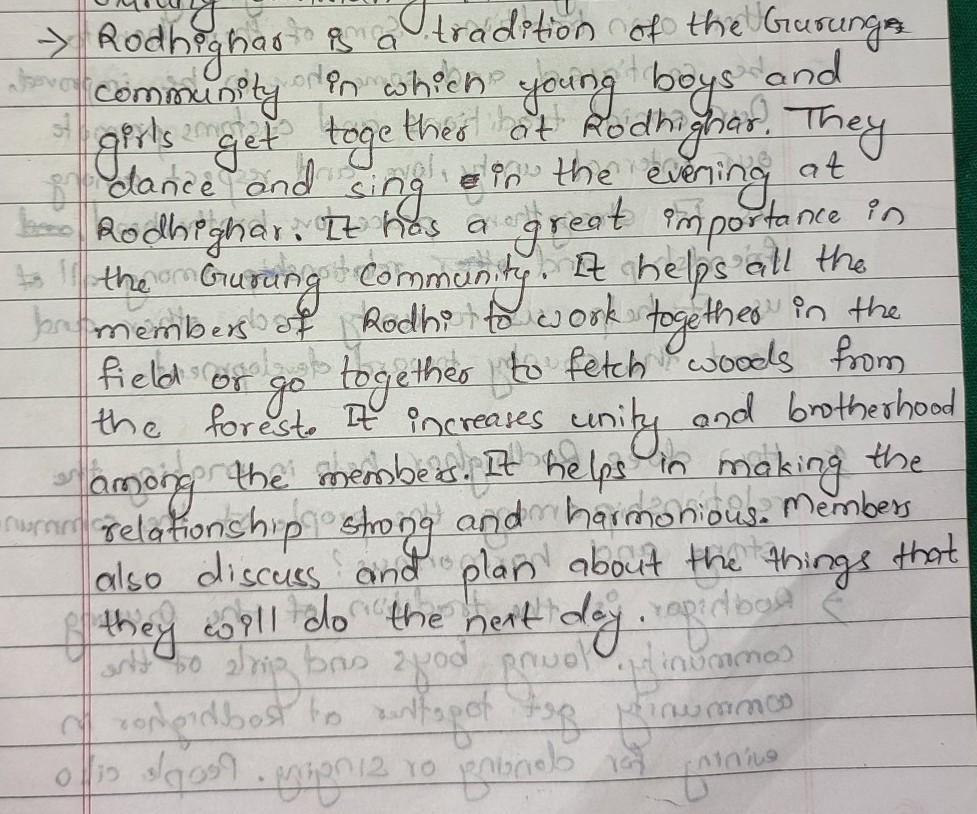 → Rodhighar is a tradition of the Gurung
community in which young boys and
girls get together at Rodhighar. They
dance and sing in the evening at
Rodhighar. It has a great importance in
the Gurung community. It helps all the
members of Rodhi to work together in the
field or go together to fetch woods from
the forest. It increases unity and brotherhood
among the members. It helps in making the
relationship strong and harmonious. Members
also discuss and plan about the things that
they will do the next day.